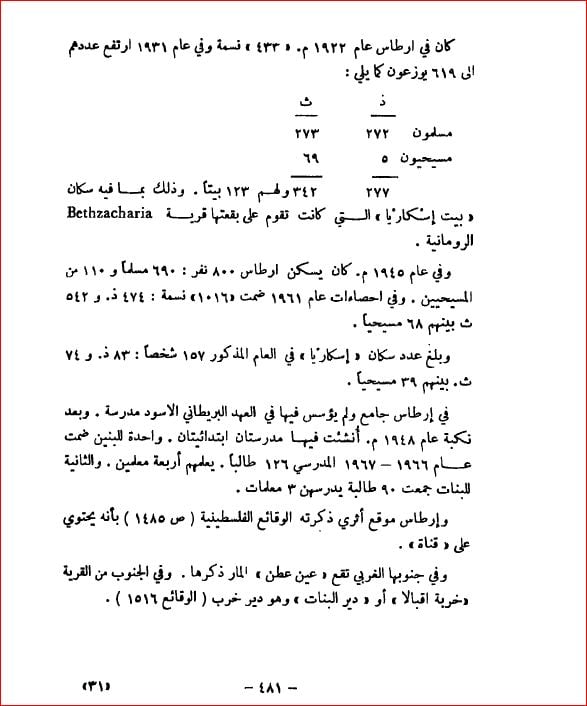 كان في ارطاس عام ١٩٢٢ م. « ٤٣٣ » نسمة وفي عام ١٩٣١ ارتفع عددهم
الى ٦١٩ يوزعون كما يلي :
ذ ث
مسلمون ٢٧٢ ٢٧٣
مسيحيون ٥ ٦٩
٢٧٧ ٣٤٢ ولهم ١٢٣ بيتاً . وذلك بما فيه سكان
« بيت إسْكارْيا » التي كانت تقوم على بقعتها قرية Bethzacharia
الرومانية .
وفي عام ١٩٤٥ م. كان يسكن ارطاس ٨٠٠ نفر : ٦٩٠ مسلماً و ١١٠ من
المسيحيين . وفي احصاءات عام ١٩٦١ ضمت «١٠١٦» نسمة : ٤٧٤ ذ. و ٥٤٢
ث بينهم ٦٨ مسيحياً .
وبلغ عدد سكان « إسكارْيا » في العام المذكور ١٥٧ شخصاً : ٨٣ ذ. و ٧٤
ث. بينهم ٣٩ مسيحياً .
في إرطاس جامع ولم يؤسس فيها في العهد البريطاني الاسود مدرسة . وبعد
نكبة عام ١٩٤٨ م. أُنشئت فيها مدرستان ابتدائيتان . واحدة للبنين ضمت
عام ١٩٦٦ – ١٩٦٧ المدرسي ١٢٦ طالباً . يعلمهم أربعة معلمين . والثانية
للبنات جمعت ٩٠ طالبة يدرسهن ٣ معلمات .
وإرطاس موقع أثري ذكرته الوقائع الفلسطينية ( ص ١٤٨٥ ) بأنه يحتوي
على « قناة » .
وفي جنوبها الغربي تقع « عين عطن » المار ذكرها . وفي الجنوب من القرية
«خربة اقبالا » أو « دير البنات » وهو دير خرب ( الوقائع ١٥١٦ ) .
– ٤٨١ – «٣١»